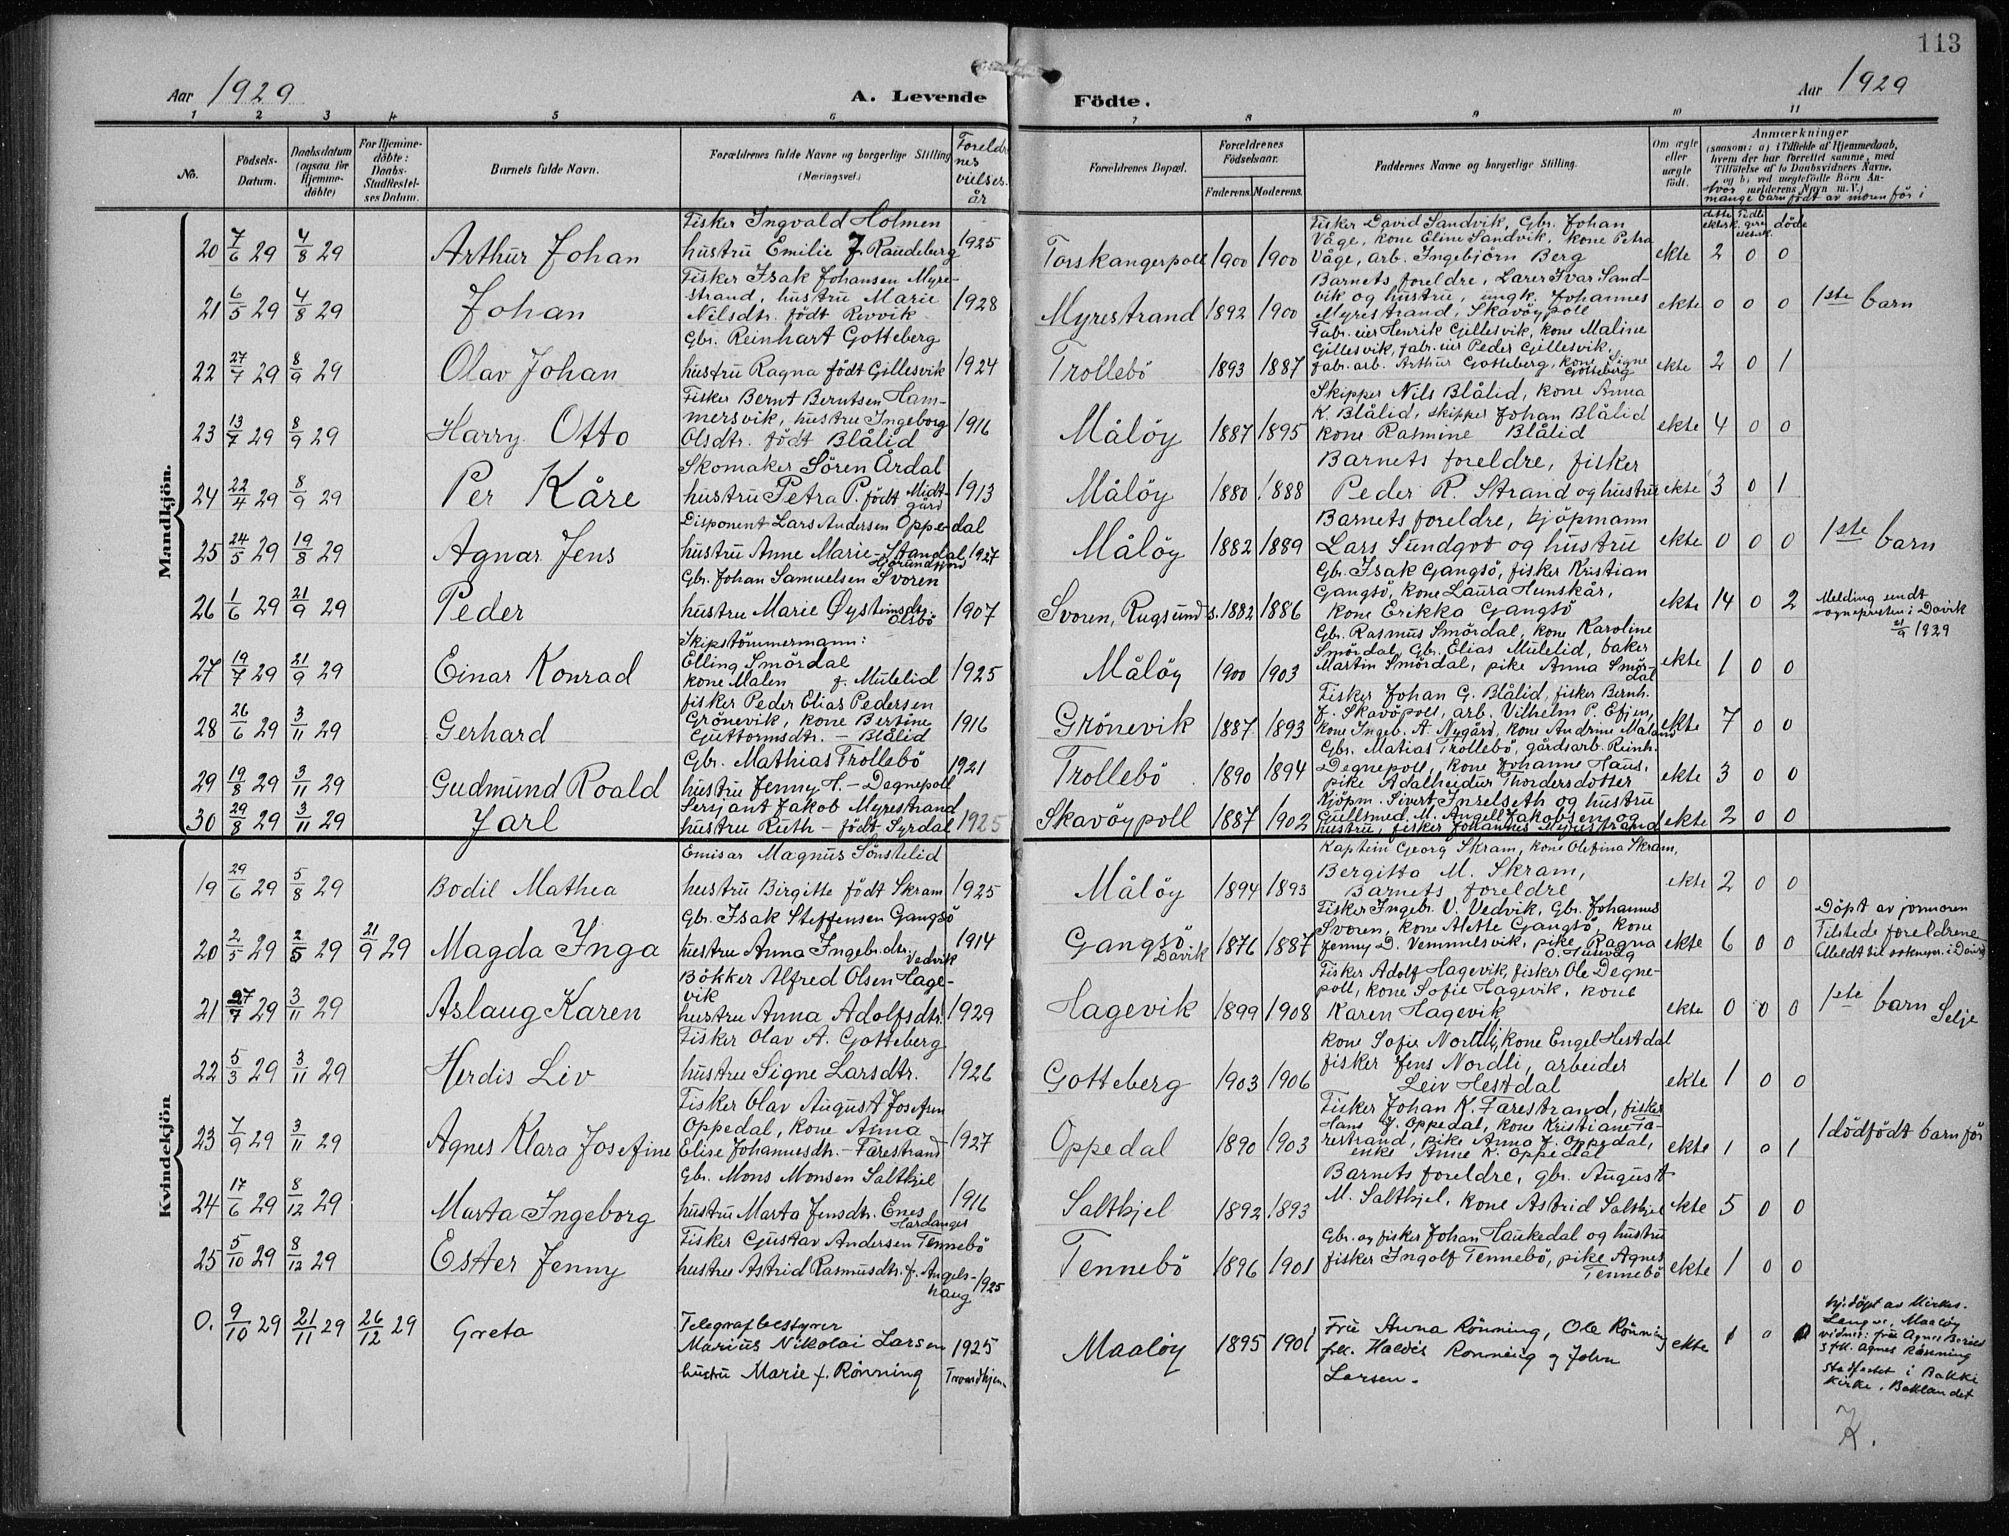 113
Aar 1929 A. Levende Födte. Aar 1929
1 2 3 4 5 6 7 8 9 10 11
No.
Födsels-Datum.
Daabsdatum (ogsaa for Hjemme-döbte)
For Hjemme-döbte: Daabs-Stadfæstel-ses Datum.
Barnets fulde Navn.
Forældrenes fulde Navne og borgerlige Stilling (Næringsvei.)
Foreldrenes vielses. år
Forældrenes Bopæl.
Forældrenes Födselsaar. Faderens. Moderens.
Faddernes Navne og borgerlige Stilling.
Om ægte eller uægte födt.
Anmærkninger
(saasom: a) i Tilfælde af Hjemmedaab,
hvem der har forrettet samme, med
Tilföielse af to Daabsvidners Navne,
og b) ved uægtefödte Börn An-
melderens Navn m. V.)
Hvor mange barn födt av moren för i
döde
Mandkjön.
20 7/6 29 4/8 29 Arthur Johan
Fisker Ingvald Holmen
hustru Emilie f. Raudeberg 1925
Torskangerpoll 1900 1900
Fisker David Sandvik, Gbr. Johan
Våge, kone Eline Sandvik, kone Petra
Våge, arb. Ingebjörn Berg
ekte 2 0 0
21 6/5 29 4/8 29 Johan
Fisker Isak Johansen Myre-
strand, hustru Marie
Nilsdtr. födt Revvik 1928
Myrestrand 1892 1900
Barnets foreldre, Lærer Ivar Sand-
vik og hustru, ungk. Johannes
Myrestrand, Skavöypoll
ekte 0 0 0 1ste barn
22 27/7 29 8/9 29 Olav Johan
Gbr. Reinhart Gotteberg
hustru Ragna födt Gillesvik 1924
Trollebö 1893 1887
Fabr.eier Henrik Gillesvik, kone Maline
Gillesvik, fabr.eier Peder Gillesvik,
fabr.arb. Arthur Gotteberg, kone Signe
Gotteberg
ekte 2 0 1
23 13/7 29 8/9 29 Harry Otto
Fisker Bernt Berntsen Ham-
mersvik, hustru Ingeborg
Olsdtr. födt Blålid 1916
Målöy 1887 1895
Skipper Nils Blålid, kone Anna
K. Blålid, skipper Johan Blålid
kone Rasmine Blålid
ekte 4 0 0
24 22/4 29 8/9 29 Per Kåre
Skomaker Sören Årdal
hustru Petra P. födt Midt-
gård 1913
Målöy 1880 1888
Barnets foreldre, fisker
Peder R. Strand og hustru
ekte 3 0 1
25 24/5 29 19/8 29 Agnar Jens
Disponent Lars Andersen Oppedal
hustru Anne Marie - Standal
Hörundfjord 1927
Målöy 1882 1889
Barnets foreldre, kjöpmann
Lars Sundgot og hustru
ekte 0 0 0 1ste barn
26 1/6 29 21/9 29 Peder
Gbr. Johan Samuelsen Svoren
hustru Marie Øysteinsdtr.
Elsebö 1907
Svoren, Rugsund s. 1882 1886
Gbr. Isak Gangsö, fisker Kristian
Gangsö, kone Laura Hunskår,
kone Erikka Gangsö
ekte 14 0 2
Melding sendt
sogneprsten i Davik
21/9 1929
27 19/7 29 21/9 29 Einar Konrad
Skipstömmermann:
Elling Smördal
kone Malen f. Mulelid 1925
Målöy 1900 1903
Gbr. Rasmus Smördal, kone Karoline
Smördal, Gbr. Elias Mulelid, baker
Martin Smördal, pike Anna Smör-
dal
ekte 1 0 0
28 26/6 29 3/11 29 Gerhard
fisker Peder Elias Pedersen
Grönevik, kone Bertine
Guttormsdtr. - Blålid 1916
Grönevik 1887 1893
Fisker Johan G. Blålid, fisker Bernh.
J. Skavöpoll, arb. Vilhelm P. Efjem,
kone Ingeb. A. Nygård, kone Andrine Måland
ekte 7 0 0
29 19/8 29 3/11 29 Gudmund Roald
Gbr. Mathias Trollebö
hustru Jenny H. - Degnepoll 1921
Trollebö 1890 1894
Gbr. Matias Trollebö, gårdsarb. Reinh.
Degnepoll, kone Johanne Haus,
pike Adalheidur Thordersdotter
ekte 3 0 0
30 29/8 29 3/11 29 Jarl
Sersjant Jakob Myrestrand
hustru Ruth - födt Syrdal 1925
Skavöypoll 1887 1902
Kjöpm. Sivert Inselseth og hustru
Gullsmed. M. Angell Jakobsen og
hustru, fisker Johannes Myrestrand
ekte 2 0 0
Kvindekjön
19 29/6 29 5/8 29 Bodil Mathea
Emisær Magnus Sönstelid
hustru Birgitte födt Skram 1925
Målöy 1894 1893
Kaptein Georg Skram, kone Olefina Skram,
Bergitta M. Skram,
Barnets foreldre
ekte 2 0 0
20 2/5 29 2/5 29 21/9 29 Magda Inga
Gbr. Isak Steffensen Gangsö
hustru Anna Ingebr.dtr.
Vedvik 1914
Gangsö.
Davik 1876 1887
Fisker Ingebr. V. Vedvik, Gbr. Johannes
Svoren, kone Alette Gangsö, kone
Jenny D. Vemmelsvik, pike Ragna
O. Husevåg
ekte 6 0 0
Döpt av jormoren
Tilstede foreldrene
Meldt til soknepr. i Davik
21 27/7 29 3/11 29 Aslaug Karen
Bökker Alfred Olsen Hage-
vik
hustru Anna Adolfsdtr. 1929
Hagevik 1899 1908
Fisker Adolf Hagevik, fisker Ole Degne-
poll, kone Sofie Hagevik, kone
Karen Hagevik
ekte 0 0 0 1ste barn
Selje
22 5/3 29 3/11 29 Herdis Liv
Fisker Olav A. Gotteberg
hustru Signe Larsdtr. 1926
Gotteberg 1903 1906
kone Sofie Nordli, kone Engel Hestdal
fisker Jens Nordli, arbeider
Leiv Hestdal
ekte 1 0 0
23 7/9 29 3/11 29 Agnes Klara Josefine
Fisker Olav August Josefsen
Oppedal, kone Anna
Elise Johannesdtr. - Færestrand 1927
Oppedal 1890 1903
Fisker Johan K. Færestrand, fisker
Hans J. Oppedal, kone Kristiane Fæ-
restrand, pike Anna J. Oppedal,
enke Anne K. Oppedal
ekte 1 0 1 1 dödfödt barn för
24 17/6 29 8/12 29 Marta Ingeborg
Gbr. Mons Monsen Saltkjel
hustru Marta Jensdtr. Enes
Hardanger 1916
Saltkjel 1892 1893
Barnets foreldre, gbr. August
M. Saltkjel, kone Astrid Saltkjel
ekte 5 0 0
25 5/10 29 8/12 29 Ester Jenny
Fisker Gustav Andersen Tennebö
hustru Astrid Rasmusdtr. f. Angels-
haug 1925
Tennebö 1896 1901
Gbr. og fisker Johan Haukedal og hustru
fisker Ingolf Tennebö, pike Agnes
Tennebö
ekte 1 0 0
0. 9/10 29 21/11 29 26/12 29 Greta
Telegrafbestyrer
Marius Nikolai Larsen 1925
hustru Marie f. Rönning Trondhjem
Maalöy 1895 1901
Fru Anna Rönning, Ole Rönning
frk. Haldis Rönning og John
Larsen.
ekte 1 0 0
hj.döpt av
Maalöy
vidner: fru Agnes
frk. Agnes Rönning
Stadfestet i Bakke
kirke, Baklandet
K.